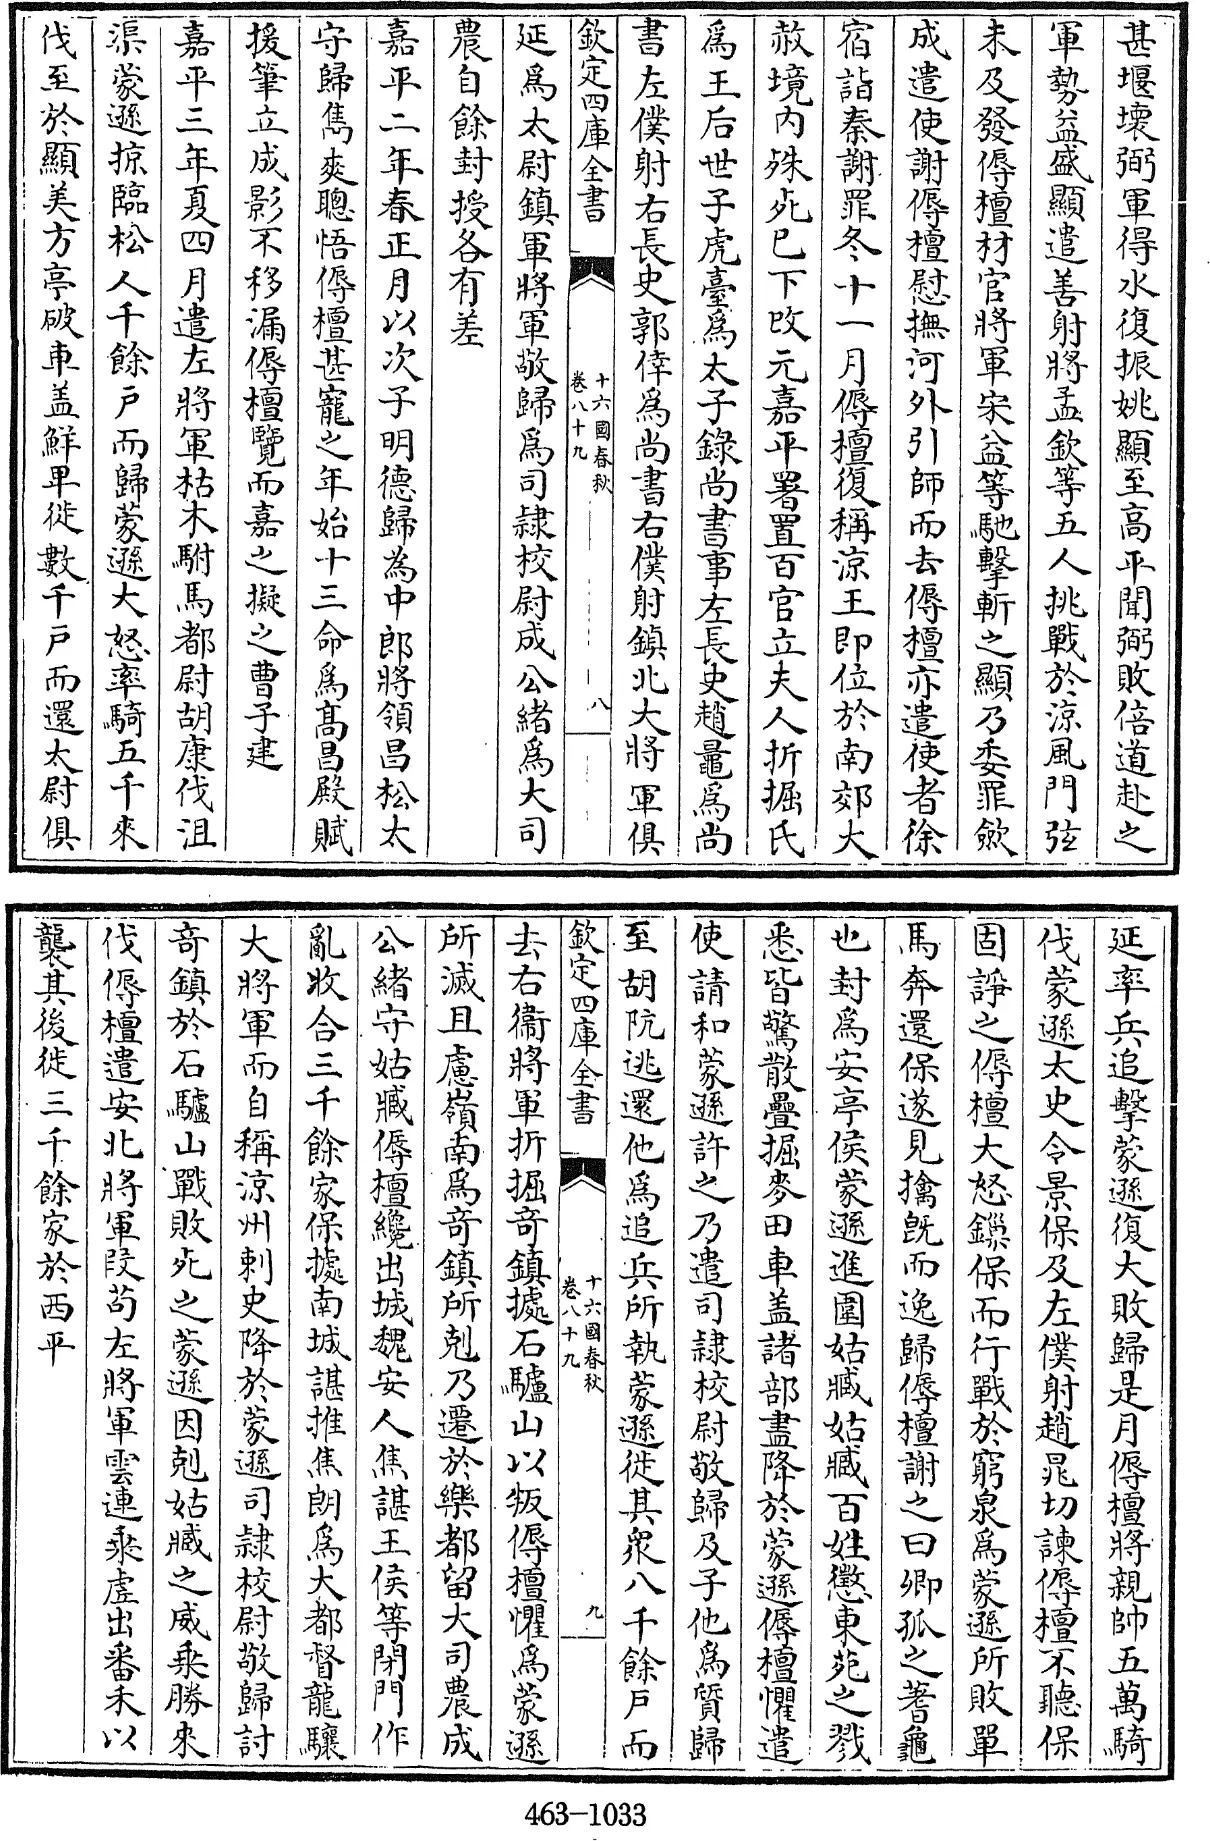 甚堰壊弼軍得水復振姚顯至高平聞弼敗倍道赴之
軍勢益盛顯遣善射將孟欽等五人挑戰於涼風門弦
未及發傉檀材官將軍宋益等馳擊斬之顯乃委罪歛
成遣使謝傉檀慰撫河外引師而去傉檀亦遣使者徐
宿詣秦謝罪冬十一月傉檀復稱涼王即位於南郊大
赦境内殊死已下改元嘉平署置百官立夫人折掘氏
爲王后世子虎臺爲太子錄尚書事左長史趙鼂爲尚
書左僕射右長史郭倖爲尚書右僕射鎮北大將軍俱
欽定四庫全書
十六國春秋
卷八十九
八
延爲太尉鎮軍將軍敬歸爲司隷校尉成公緒爲大司
農自餘封授各有差
嘉平二年春正月以次子明德歸為中郎將領昌松太
守歸雋爽聰悟傉檀甚寵之年始十三命爲髙昌殿賦
援筆立成影不移漏傉檀覽而嘉之擬之曹子建
嘉平三年夏四月遣左將軍枯木駙馬都尉胡康伐沮
渠蒙遜掠臨松人千餘户而歸蒙遜大怒率騎五千來
伐至於顯美方亭破車盖鮮卑徙數千户而還太尉俱
延率兵追擊蒙遜復大敗歸是月傉檀將親帥五萬騎
伐蒙遜太史令景保及左僕射趙晁切諫傉檀不聽保
固諍之傉檀大怒鏁保而行戰於窮泉爲蒙遜所敗單
馬奔還保遂見擒旣而逸歸傉檀謝之曰卿孤之蓍龜
也封爲安亭侯蒙遜進圍姑臧姑臧百姓懲東苑之戮
悉皆驚散疊掘麥田車盖諸部盡降於蒙遜傉檀懼遣
使請和蒙遜許之乃遣司隷校尉敬歸及子他爲質歸
至胡阬逃還他爲追兵所執蒙遜徙其衆八千餘户而
欽定四庫全書
十六國春秋
卷八十九
九
去右衞將軍折掘竒鎮據石驢山以叛傉檀懼爲蒙遜
所滅且慮嶺南爲竒鎮所剋乃遷於樂都留大司農成
公緒守姑臧傉檀纔出城魏安人焦諶王侯等閉門作
亂收合三千餘家保據南城諶推焦朗爲大都督龍驤
大將軍而自稱涼州刺史降於蒙遜司隷校尉敬歸討
竒鎮於石驢山戰敗死之蒙遜因剋姑臧之威乘勝來
伐傉檀遣安北將軍段苟左將軍雲連乘虛出番禾以
襲其後徙三千餘家於西平
463-1033